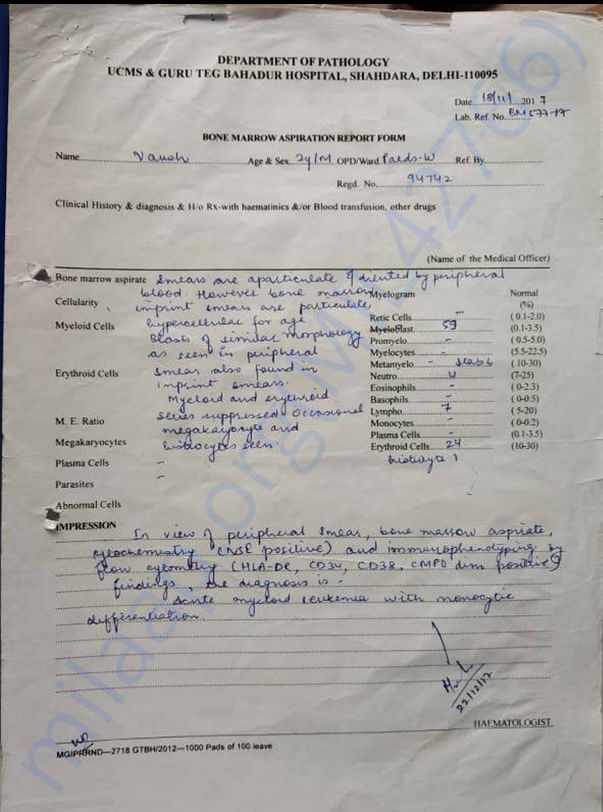 DEPARTMENT OF PATHOLOGY
UCMS & GURU TEG BAHADUR HOSPITAL, SHAHDARA, DELHI-110095
Date 18/11/ 2017
Lab. Ref. No.
BONE MARROW ASPIRATION REPORT FORM
Name Vansh Age & Sex 2y/M OPD/Ward Paeds-W Ref. By
Regd. No. 94742
Clinical History & diagnosis & H/o Rx-with haematinics &/or Blood transfusion, other drugs
(Name of the Medical Officer)
Bone marrow aspirate Smears are aparticulate & diluted by peripheral
blood. However bone marrow
imprint smears are particulate,
hypercellular for age
Blasts of similar morphology
as seen in peripheral
smear also found in
imprint smears.
Myeloid and erythroid
series suppressed. Occasional
megakaryocyte and
histiocytes seen.
Cellularity
Myeloid Cells
Erythroid Cells
M. E. Ratio
Megakaryocytes
Plasma Cells –
Parasites –
Abnormal Cells
Myelogram Normal
(%)
Retic Cells – (0.1-2.0)
Myeloblast 59 (0.1-3.5)
Promyelo – (0.5-5.0)
Myelocytes – (5.5-22.5)
Metamyelo – (10-30)
Neutro (7-25)
Eosinophils – (0-2.3)
Basophils – (0-0.5)
Lympho 7 (5-20)
Monocytes – (0-0.2)
Plasma Cells – (0.1-3.5)
Erythroid Cells 24 (10-30)
histiocyte 1
IMPRESSION In view of peripheral smear, bone marrow aspirate,
cytochemistry (NSE positive) and immunophenotyping by
flow cytometry (HLA-DR, CD34, CD38, CMPO dim positive)
findings, the diagnosis is -
Acute myeloid leukemia with monocytic
differentiation.
22/12/17
HAEMATOLOGIST
MGIPRRND—2718 GTBH/2012—1000 Pads of 100 leave